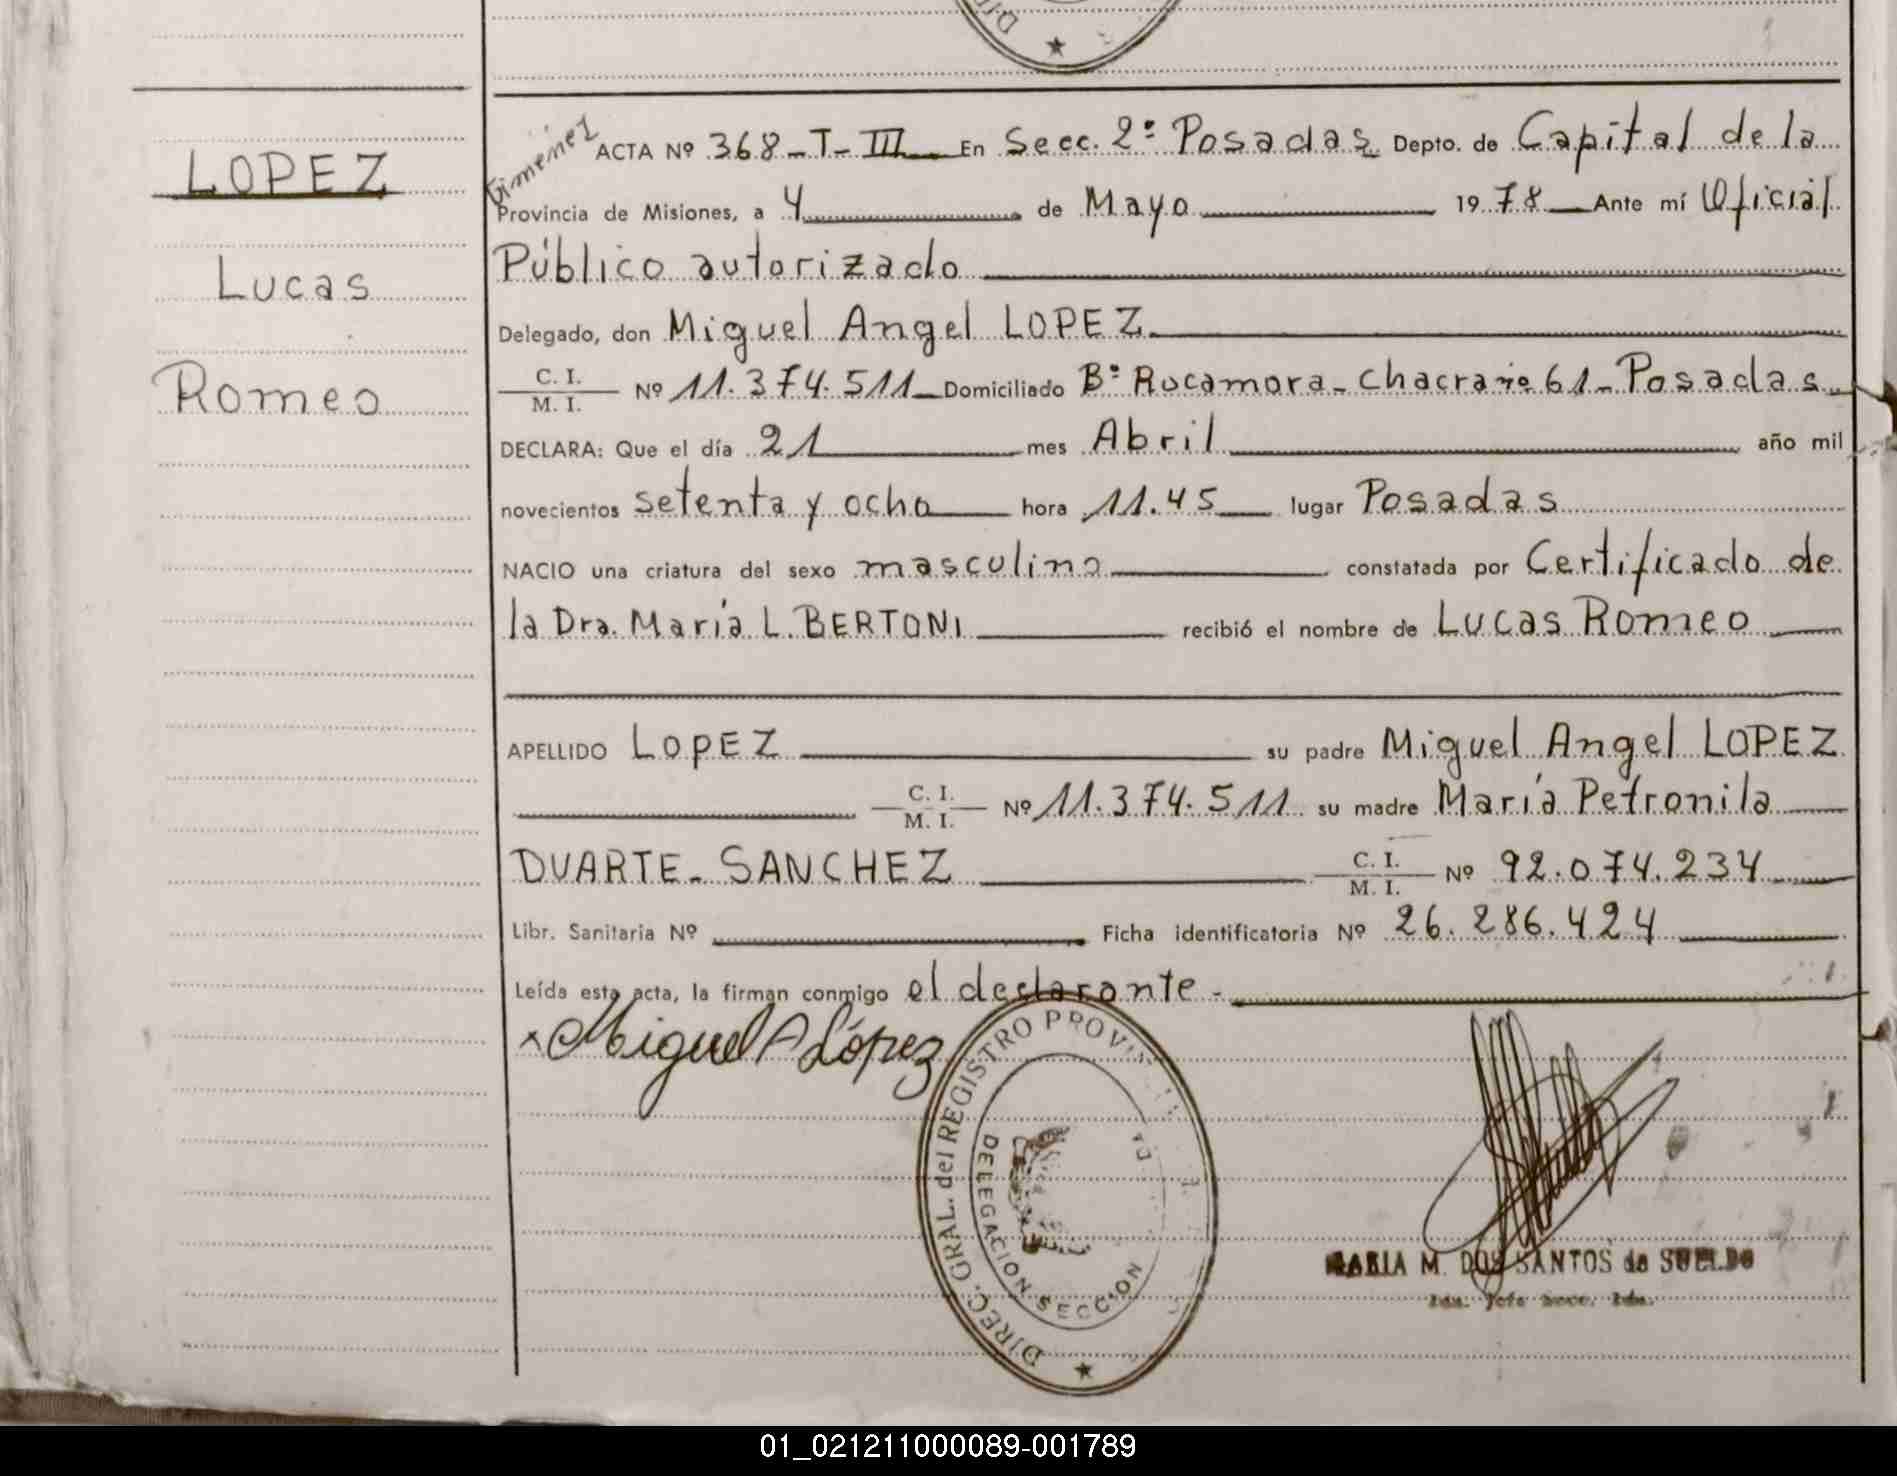 DI
LOPEZ
Lucas
Romeo
Gimenez
ACTA Nº 368-T-III En Secc. 2º Posadas Depto. de Capital de la
Provincia de Misiones, a 4 de Mayo 1978 Ante mí Oficial
Público autorizado
Delegado, don Miguel Angel LOPEZ
C. I.
M. I. Nº 11.374.511 Domiciliado Bº Rocamora - Chacra nº 61 - Posadas
DECLARA: Que el día 21 mes Abril año mil
novecientos setenta y ocho hora 11.45 lugar Posadas
NACIO una criatura del sexo masculino constatada por Certificado de
la Dra. María L. BERTONI recibió el nombre de Lucas Romeo
APELLIDO LOPEZ su padre Miguel Angel LOPEZ
C. I.
M. I. Nº 11.374.511 su madre María Petronila
DUARTE - SANCHEZ C. I.
M. I. Nº 92.074.234
Libr. Sanitaria Nº Ficha identificatoria Nº 26.286.424
Leída esta acta, la firman conmigo el declarante -
x Miguel A López
DIREC. GRAL. del REGISTRO PROVIN
DELEGACION SECCION
MARIA M. DOS SANTOS de SUELDO
Jefe Secc.
01_021211000089-001789